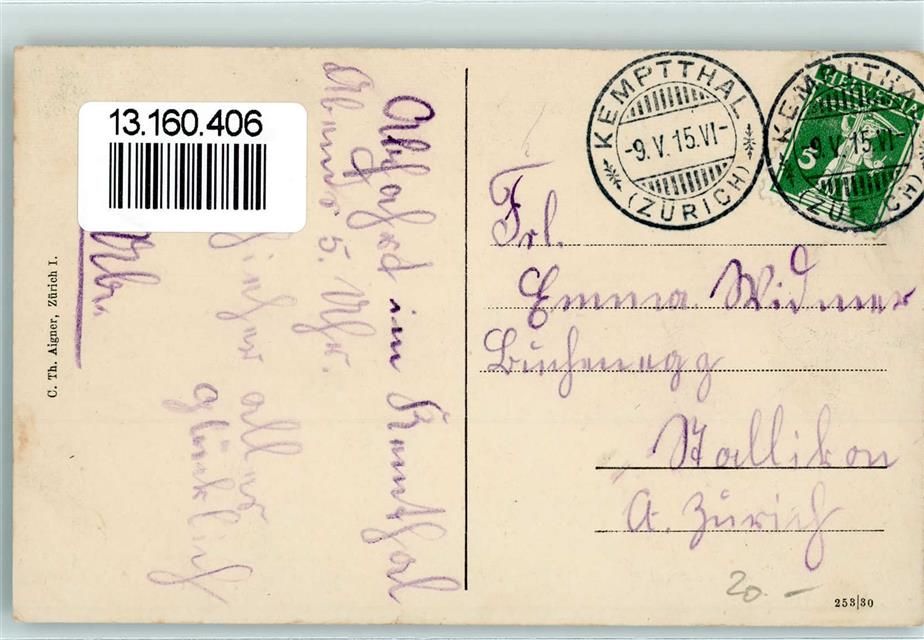 13.160.406
KEMPTTHAL
-9.V.15.VI-
(ZÜRICH)
KEMPTTHAL
-9.V.15.VI-
(ZÜRICH)
HELVETIA
5
Frl.
Emma Widmer
Buchenegg
Stallikon
A. Zürich
Abfahrd im Kemthal
Abends 5. Uhr.
aller
glücklich
C. Th. Aigner, Zürich I.
20.-
253|30